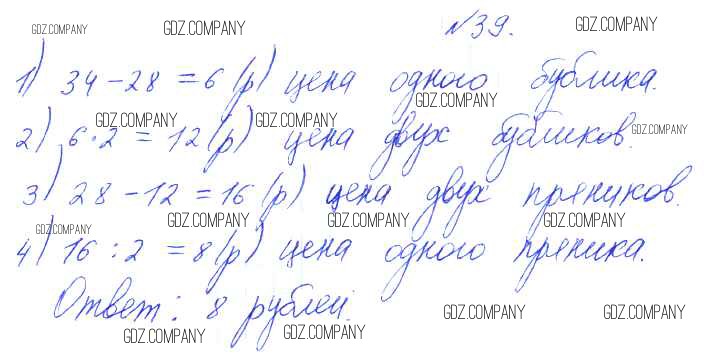 GDZ.COMPANY GDZ.COMPANY №39. GDZ.COMPANY
1) 34 - 28 = 6 (р) цена одного бублика.
GDZ.COMPANY
GDZ.COMPANY GDZ.COMPANY
2) 6·2 = 12 (р) цена двух бубликов. GDZ.COMPANY
3) 28 - 12 = 16 (р) цена двух пряников.
GDZ.COMPANY GDZ.COMPANY GDZ.COMPANY GDZ.COMPANY
4) 16 : 2 = 8 (р) цена одного пряника.
Ответ: 8 рублей.
GDZ.COMPANY GDZ.COMPANY GDZ.COMPANY GDZ.COMPANY